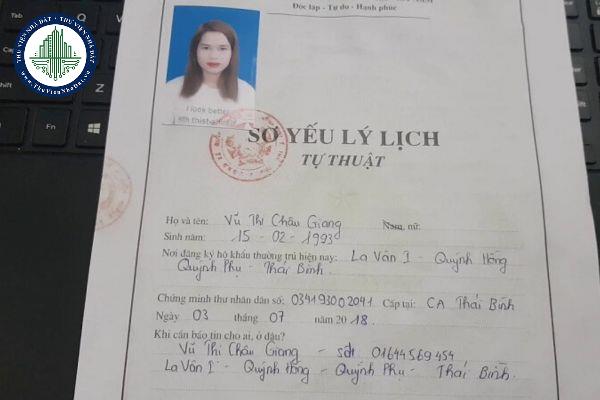 THƯ VIỆN NHÀ ĐẤT
www.ThuVienNhaDat.vn
Độc lập - Tự do - Hạnh phúc
I look better
SƠ YẾU LÝ LỊCH
TỰ THUẬT
Họ và tên: Vũ Thị Châu Giang Nam, nữ:
Sinh năm: 15 - 02 - 1993
Nơi đăng ký hộ khẩu thường trú hiện nay: La Vân I - Quỳnh Hồng
Quỳnh Phụ - Thái Bình.
Chứng minh thư nhân dân số: 034193002041 Cấp tại: CA Thái Bình
Ngày 03 tháng 07 năm 2018.
Khi cần báo tin cho ai, ở đâu?
Vũ Thị Châu Giang - sđt 01644569454
La Vân I - Quỳnh Hồng - Quỳnh Phụ - Thái Bình.
Caps
Shift
Ctrl
Fn